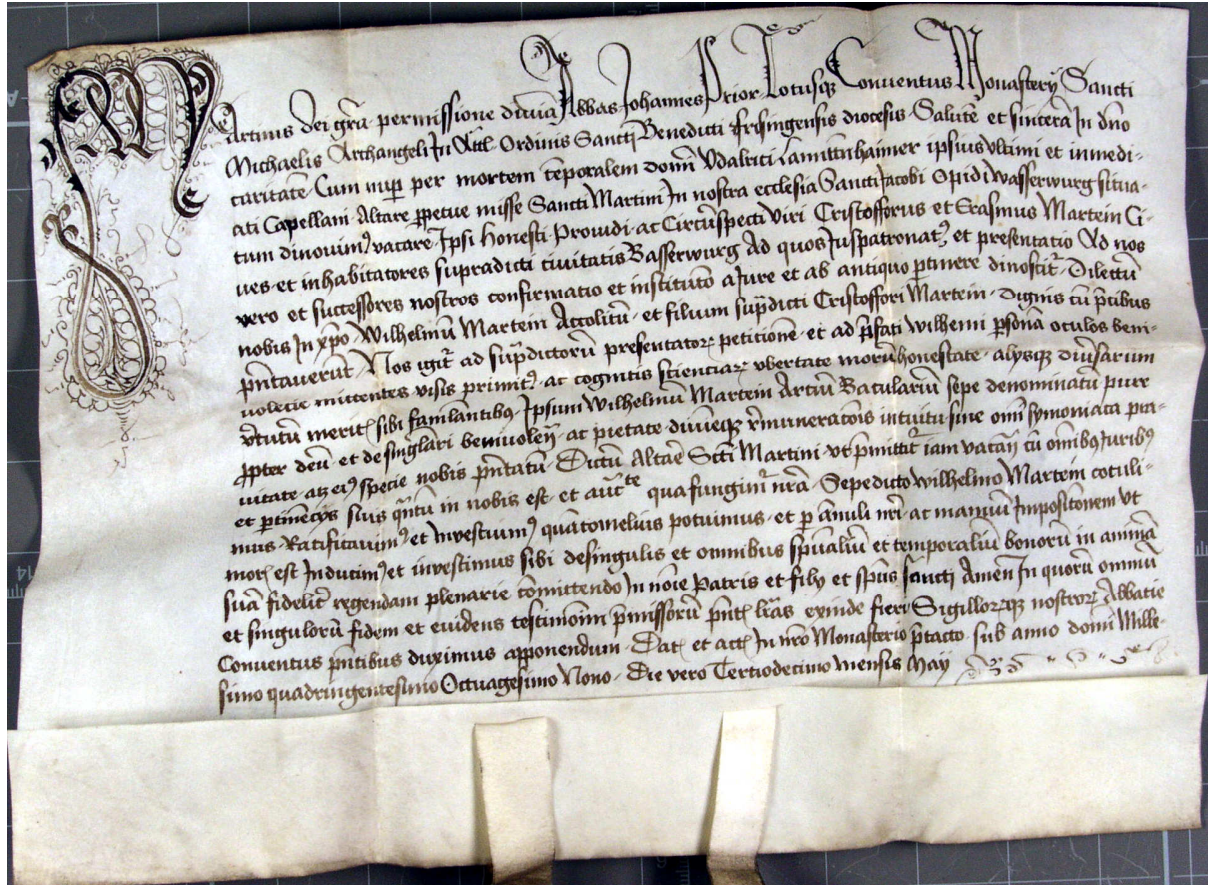 MArtinus dei grã permissione diuiã Abbas Johannes Prior Totusqz Conuentus Monastery Sancti
Michaelis Archangeli In Attl Ordinis Sancti Benedicti frisingensis diocesis Salutẽ et sincerã In dño
caritatẽ Cum nup per mortem temporalem domi Vdalrici Lamittnhaimer ipsius vltimi et inmedi-
ati Capellani Altare ppetue misse Sancti Martini In nostra ecclesia Sancti Jacobi Opidi Wasserwurg situa-
tum dinouim9 vacare Ipsi Honesti Prouidi ac Circũspecti viri Cristofforus et Erasmus Martein Ci-
ues et inhabitatores supradicti ciuitatis Basserwurg Ad quos Juspatronat9 et presentatio Ad nos
vero et successores nostros confirmatio et institutio a Jure et ab antiquo ptinere dinoscit Dilectũ
nobis In xpo Wilhelmũ Martein Accolitũ et filium supdicti Cristoffori Martein dignis cũ pcibus
pntauerũt Nos igit ad supdictorũ presentator petitionẽ et ad pfati Wilhemi psonã oculos beni-
uolecie mittentes visis primit9 ac cognitis scienciar vbertate morũ honestate alysqz diuersarum
virtutũ merit sibi famulantibus Ipsum Wilhelmũ Martein Artiũ Bacularium sepe denominatũ pure
ppter deũ et de singlari beniuoley ac pietate diuieqz remuneracois intuitu sine omi symoniaca pra-
uitate atz ei9 specie nobis pntatũ Dictũ Altaẽ Scti Martini vt pmittit iam vacañ cũ omibus Juribus
et ptinecys suis qntũ in nobis est et aucte qua fungim nra Sepedicto Wilhelmo Martein cotuli-
mus Ratificauim9 et Inuestiuim9 quatomelius potuimus et p anuli nri ac manuũ Impositonem vt
mor est Inducim9 et inuestimus sibi desingulis et omnibus spualiũ et temporaliũ bonorũ in animã
suã fidelit regendam plenarie cõmittendo In noie Patris et fily et spus sancti Amen In quorũ omniũ
et singulorũ fidem et euidens testimoim pmissorũ pnt lras exinde fieri Sigillorqz nostror Abbatie
Conuentus pntibus duximus apponendum Dat et act In nro Monasterio ptacto sub anno domi Mille-
simo quadringentesimo Octuagesimo Nono Die vero Tertiodecimo mensis May